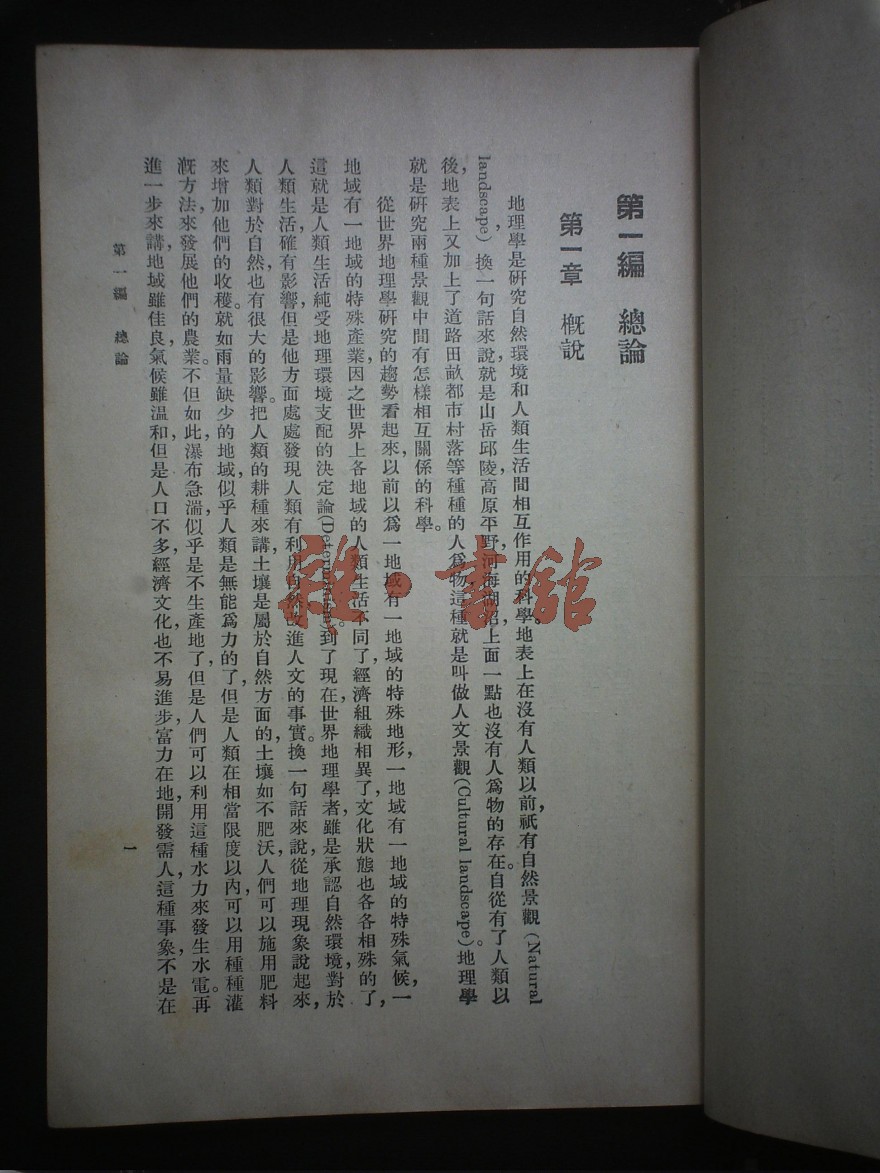 第一編　總論
第一章　概說
地理學是研究自然環境和人類生活間相互作用的科學。地表上在沒有人類以前，祇有自然景觀(Natural
landscape)，換一句話來說，就是山岳邱陵，高原平野，河海湖沼，上面一點也沒有人爲物的存在。自從有了人類以
後，地表上又加上了道路田畝都市村落等種種的人爲物，這種就是叫做人文景觀(Cultural landscape)。地理學
就是研究兩種景觀中間有怎樣相互關係的科學。
從世界地理學研究的趨勢看起來，以前以爲一地域有一地域的特殊地形，一地域有一地域的特殊氣候，一
地域有一地域的特殊產業，因之世界上各地域的人類生活不同了，經濟組織相異了，文化狀態也各各相殊的了，
這就是人類生活純受地理環境支配的決定論(Determinism)。到了現在，世界地理學者，雖是承認自然環境，對於
人類生活，確有影響，但是他方面處處發現人類有利用自然改進人文的事實。換一句話來說，從地理現象說起來，
人類對於自然，也有很大的影響。把人類的耕種來講，土壤是屬於自然方面的，土壤如不肥沃，人們可以施用肥料
來增加他們的收穫。就如雨量缺少的地域，似乎人類是無能爲力的了，但是人類在相當限度以內，可以用種種灌
漑方法，來發展他們的農業。不但如此，瀑布急湍，似乎是不生產地了，但是人們可以利用這種水力來發生水電。再
進一步來講，地域雖佳良，氣候雖溫和，但是人口不多，經濟文化，也不易進步，富力在地，開發需人，這種事象，不是在
第一編　總論
一
雜·書館